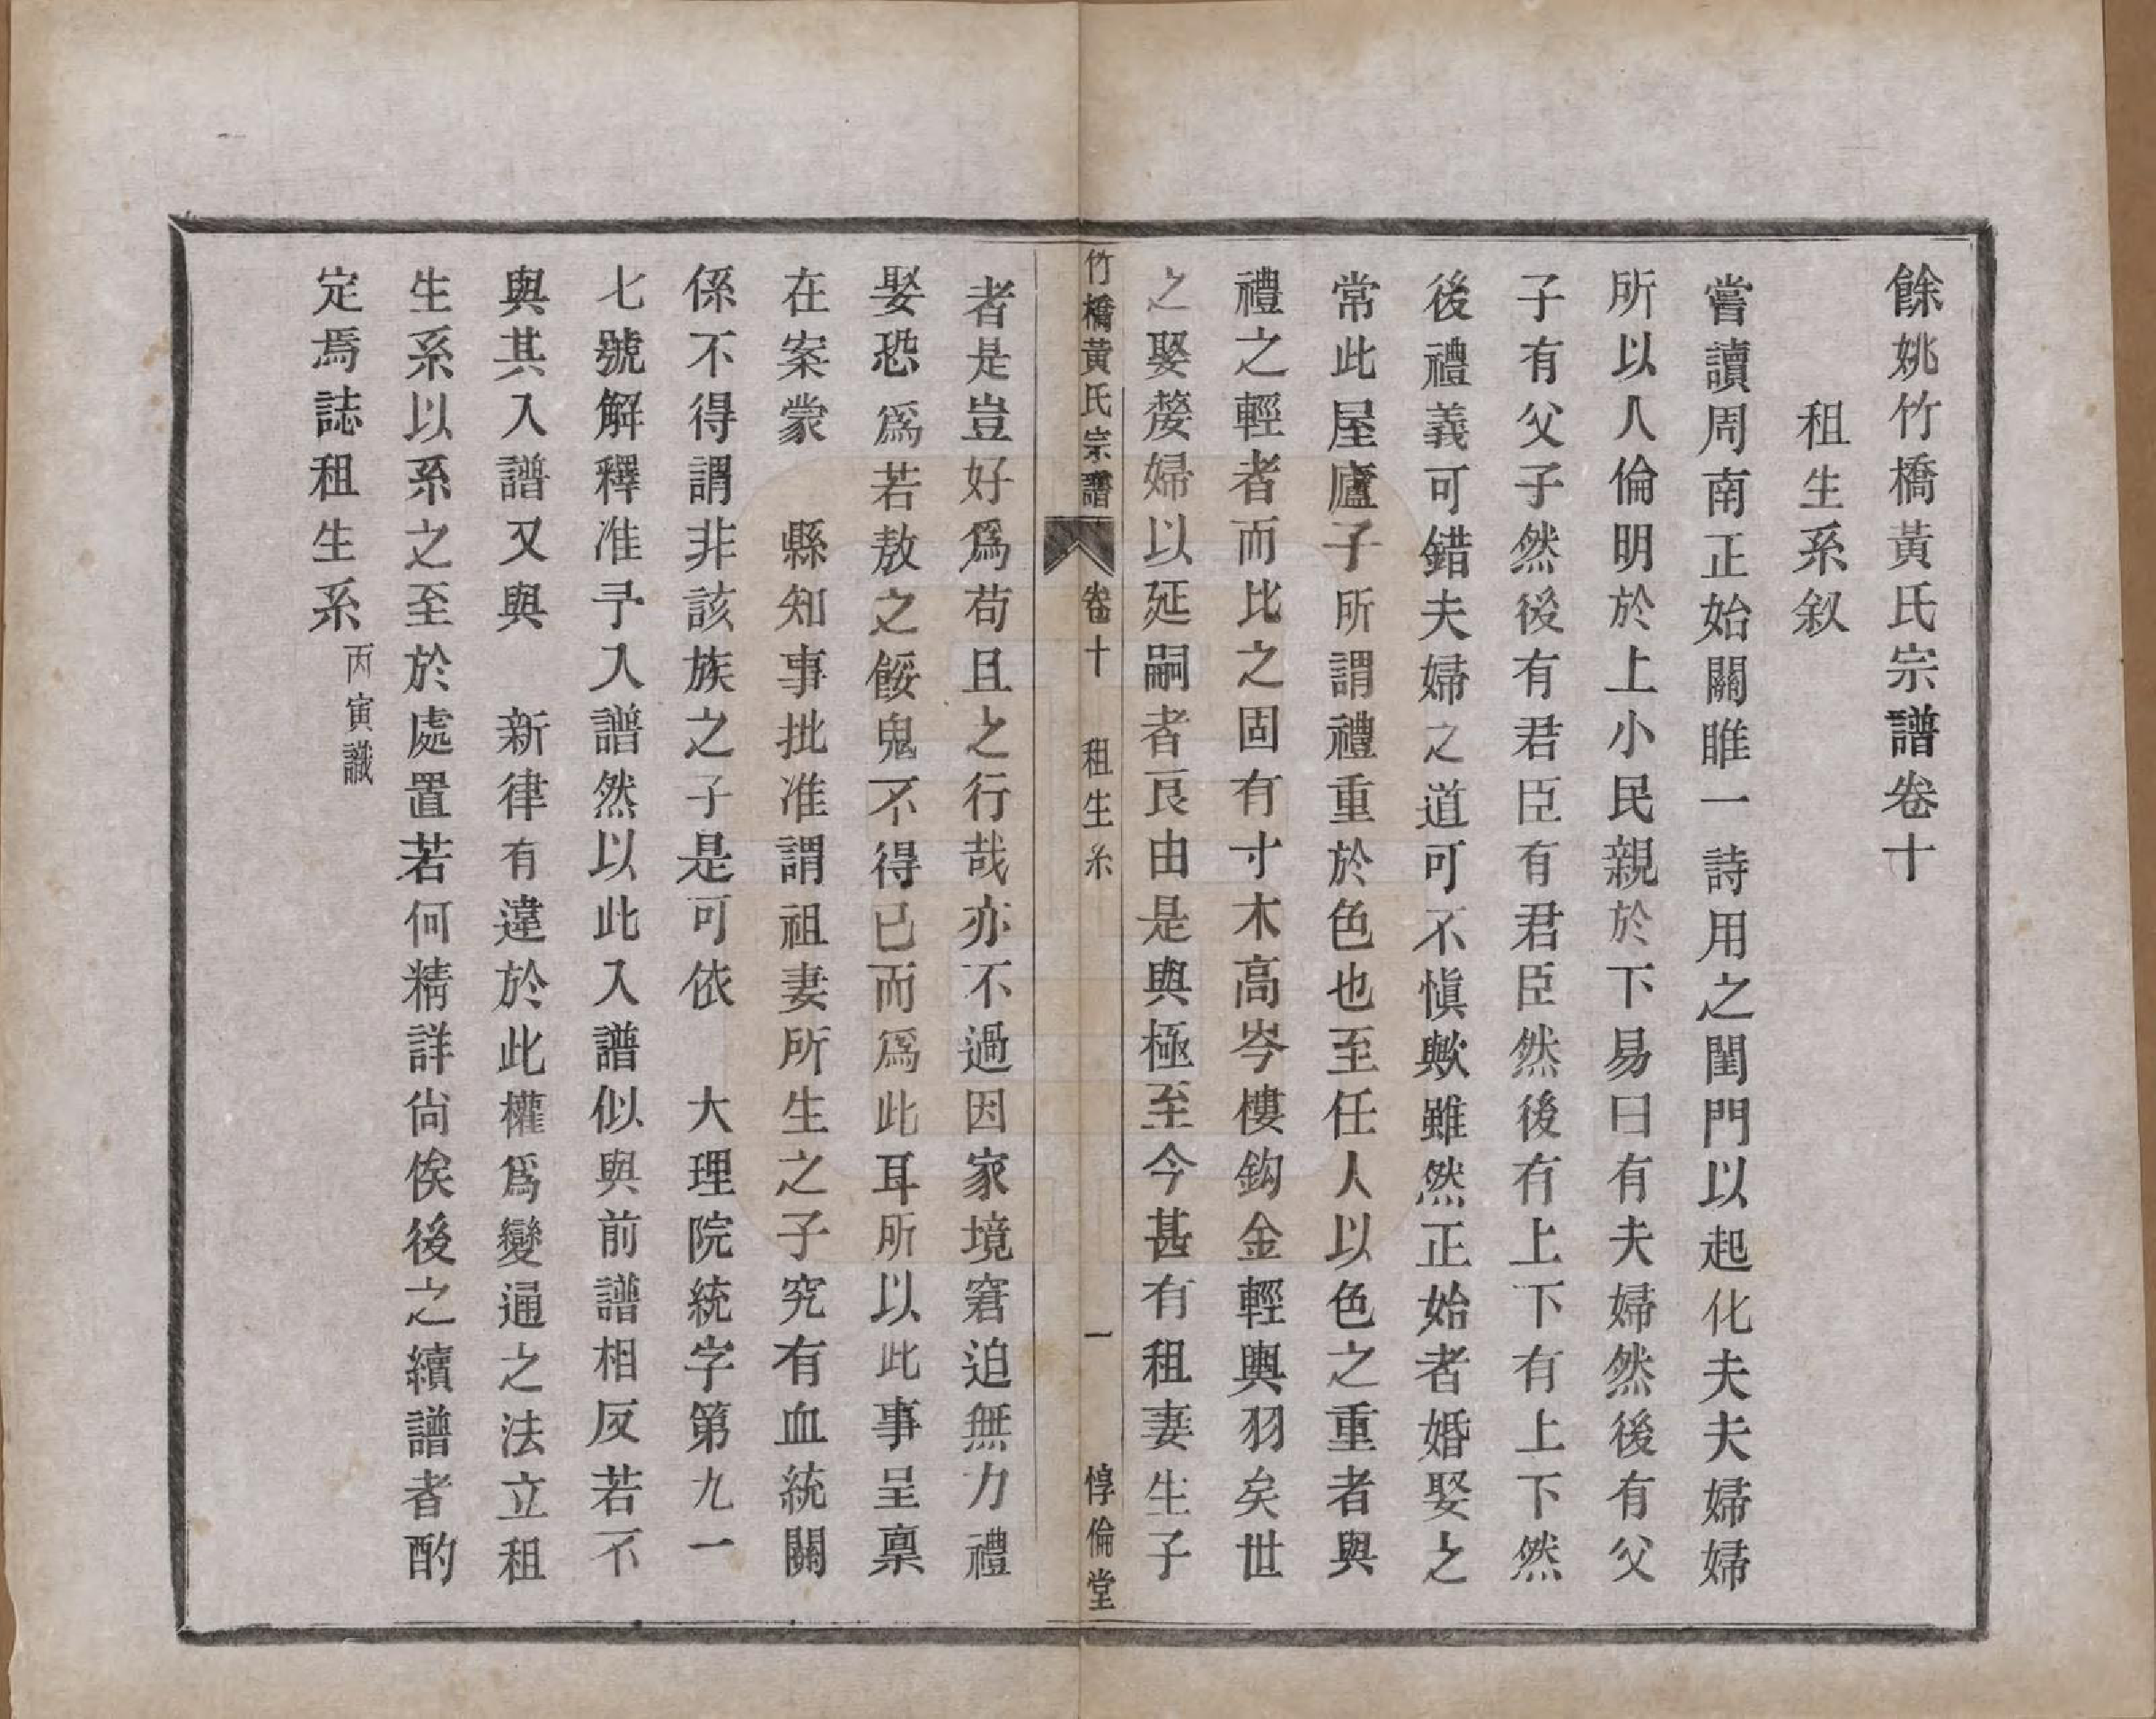 餘姚竹橋黃氏宗譜卷十
租生系叙
嘗讀周南正始關雎一詩用之閨門以起化夫夫婦婦
所以人倫明於上小民親於下易曰有夫婦然後有父
子有父子然後有君臣有君臣然後有上下有上下然
後禮義可錯夫婦之道可不愼歟雖然正始者婚娶之
常此屋廬子所謂禮重於色也至任人以色之重者與
禮之輕者而比之固有寸木高岑樓鈎金輕輿羽矣世
之娶嫠婦以延嗣者良由是與極至今甚有租妻生子
竹橋黃氏宗譜 卷十 租生系 一 惇倫堂
者是豈好爲苟且之行哉亦不過因家境窘迫無力禮
娶恐爲若敖之餒鬼不得已而爲此耳所以此事呈稟
在案蒙 縣知事批准謂祖妻所生之子究有血統關
係不得謂非該族之子是可依 大理院統字第九一
七號解釋准予入譜然以此入譜似與前譜相反若不
與其入譜又與 新律有違於此權爲變通之法立租
生系以系之至於處置若何精詳尙俟後之續譜者酌
定焉誌租生系 丙寅識